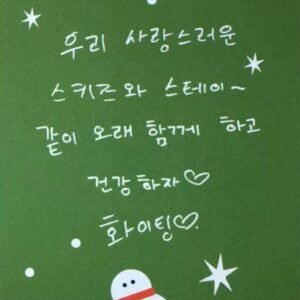 우리 사랑스러운
스키즈와 스테이~
같이 오래 함께 하고
건강하자♡
화이팅♡.